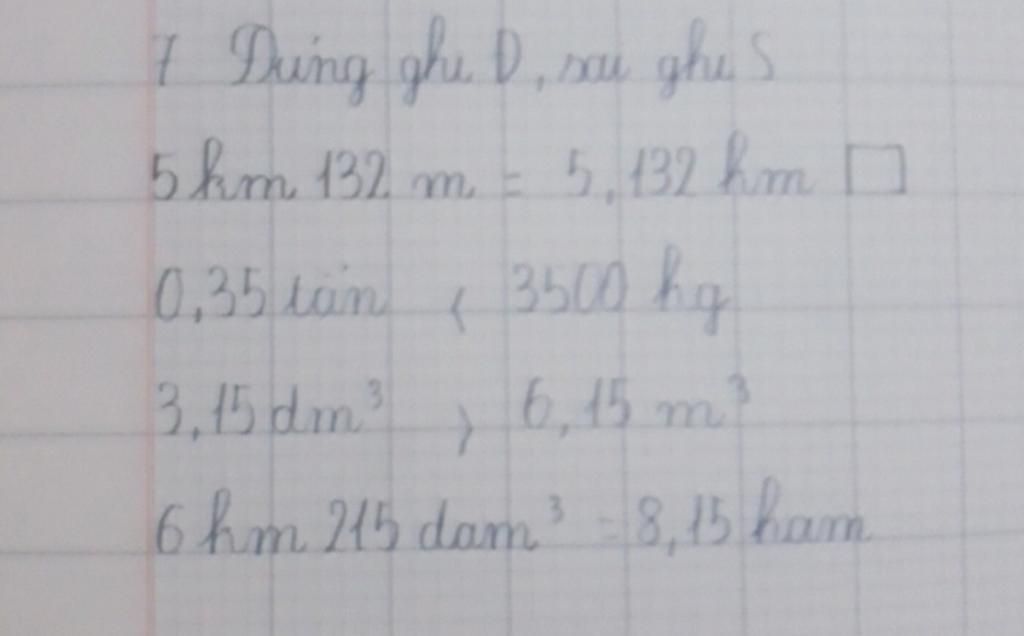 7 Đúng ghi Đ, sai ghi S
5 km 132 m = 5,132 km
0,35 tấn < 3500 kg
3,15 dm³ > 6,15 m³
6 hm 215 dam³ = 8,15 ham